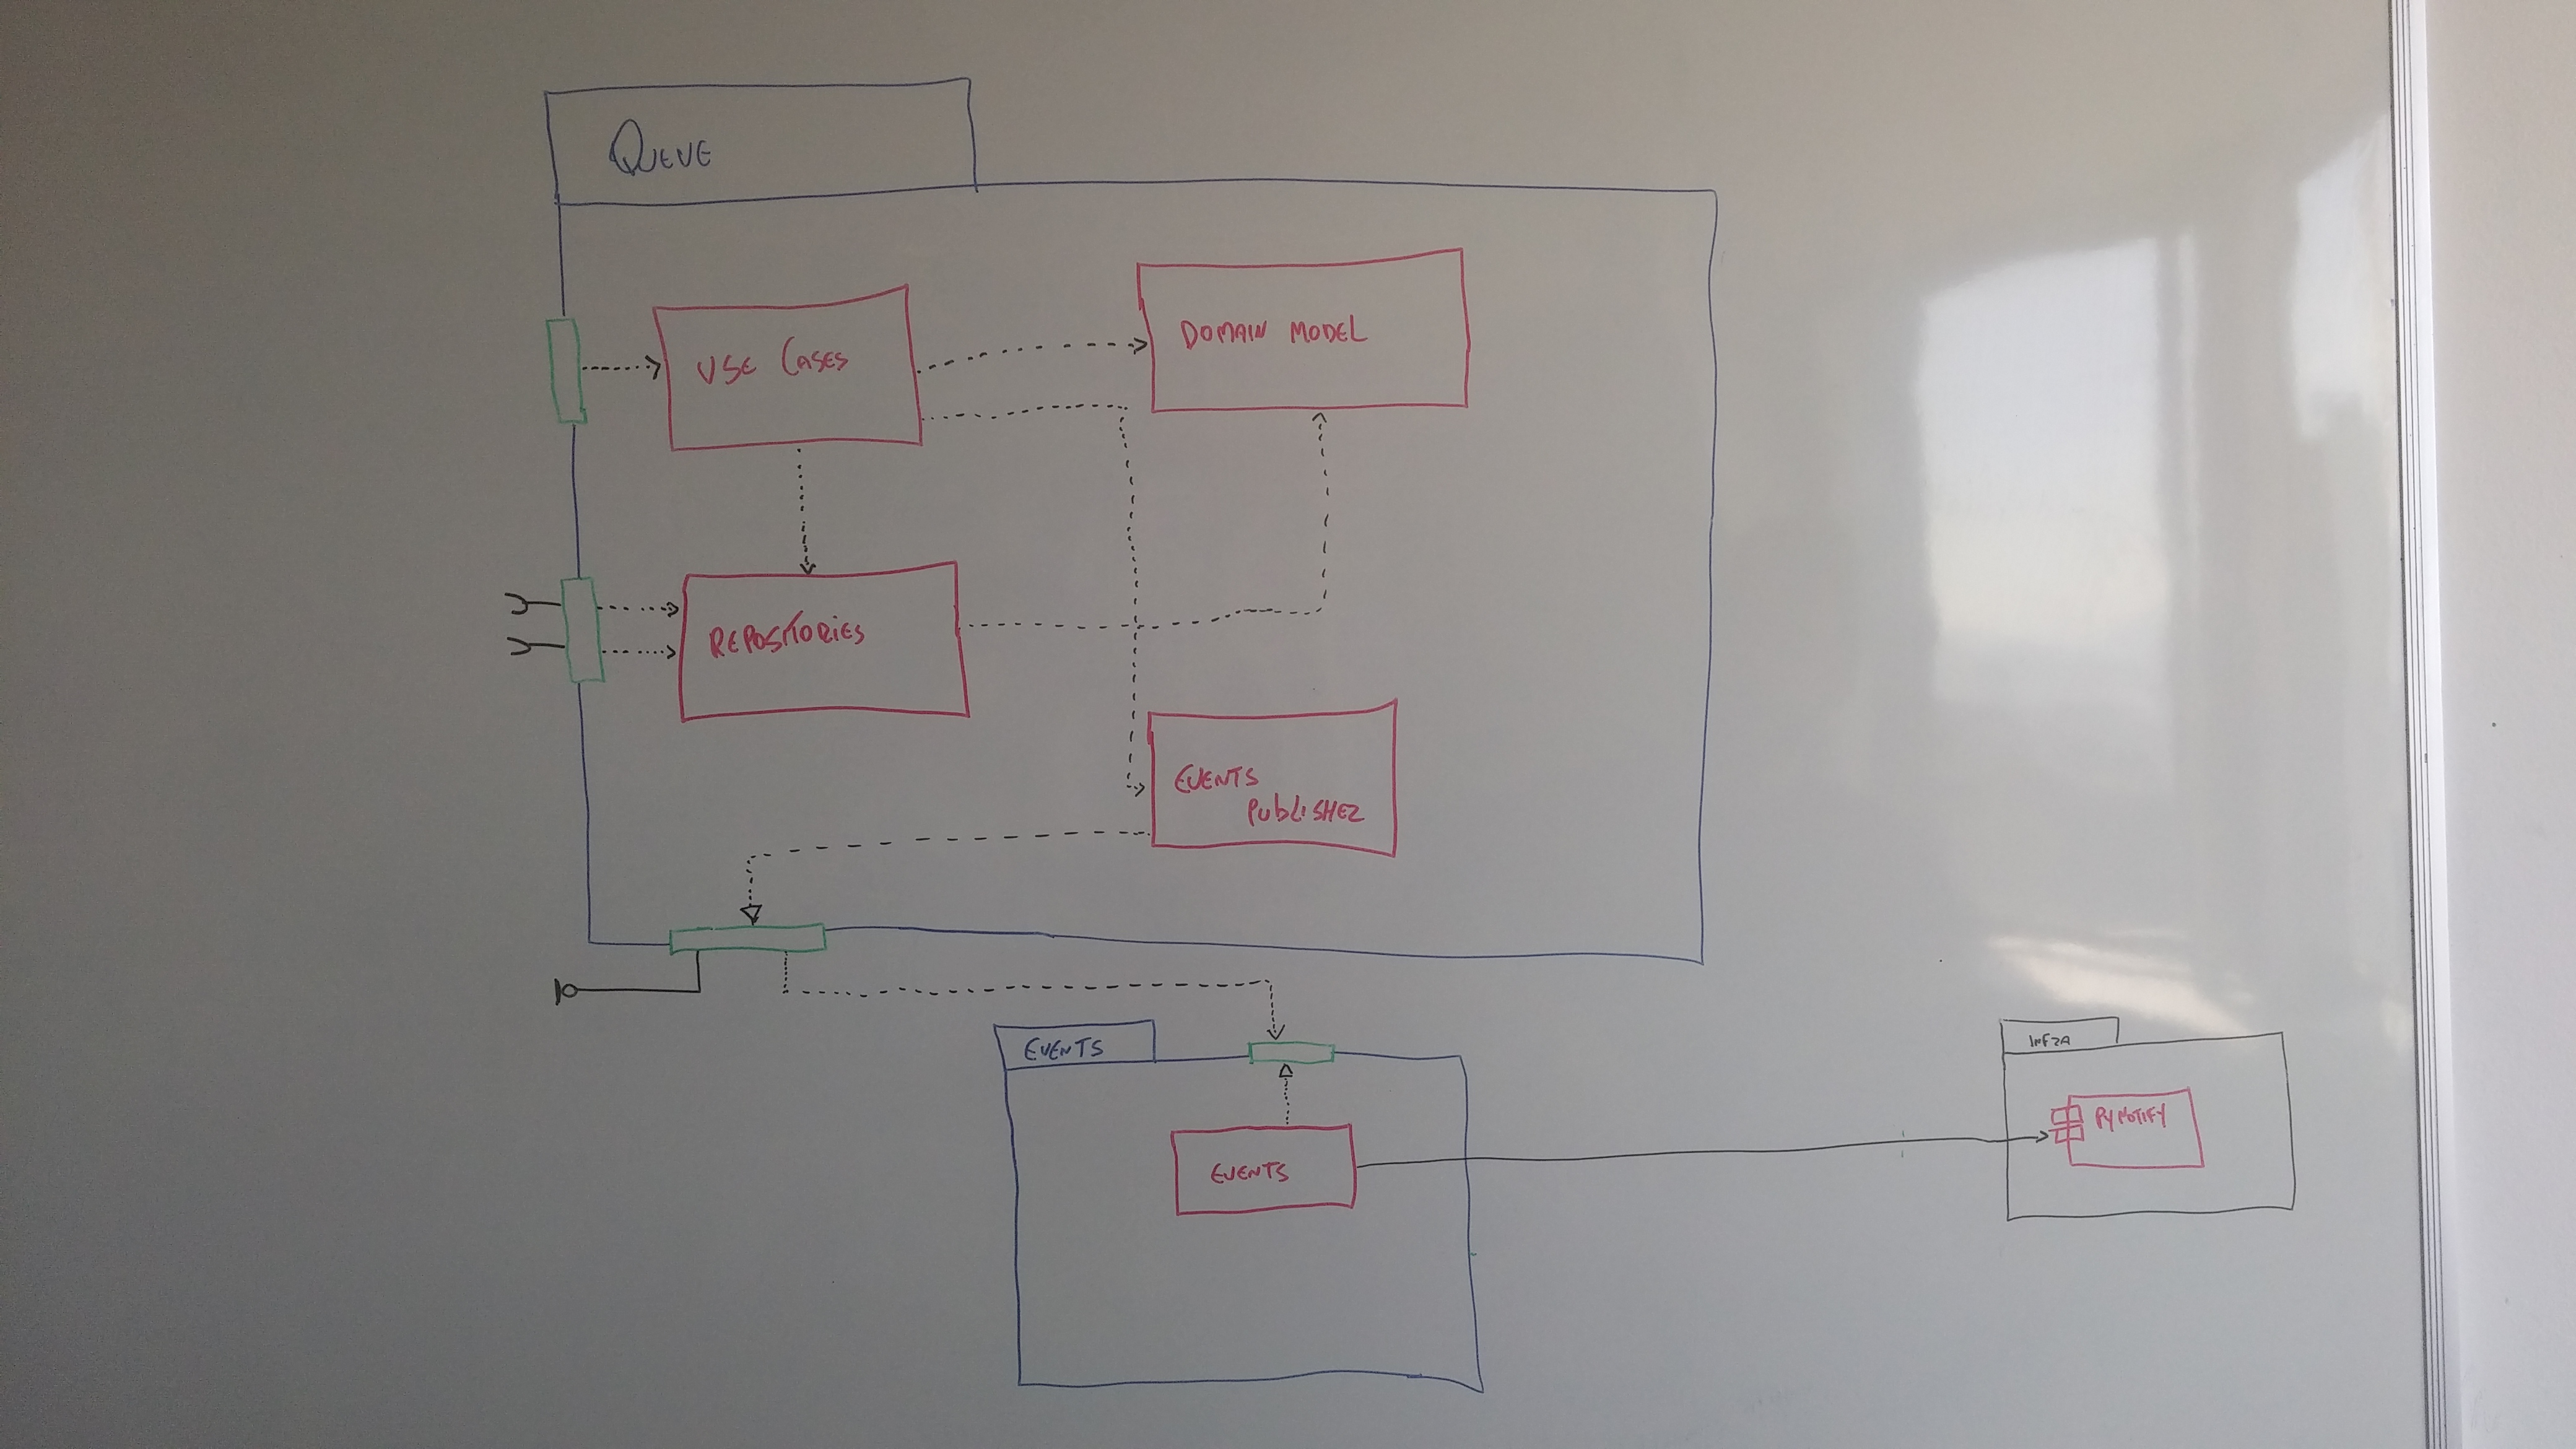 QUEUE
USE CASES
DOMAIN MODEL
REPOSITORIES
EVENTS
PUBLISHER
EVENTS
EVENTS
INFRA
PYNOTIFY